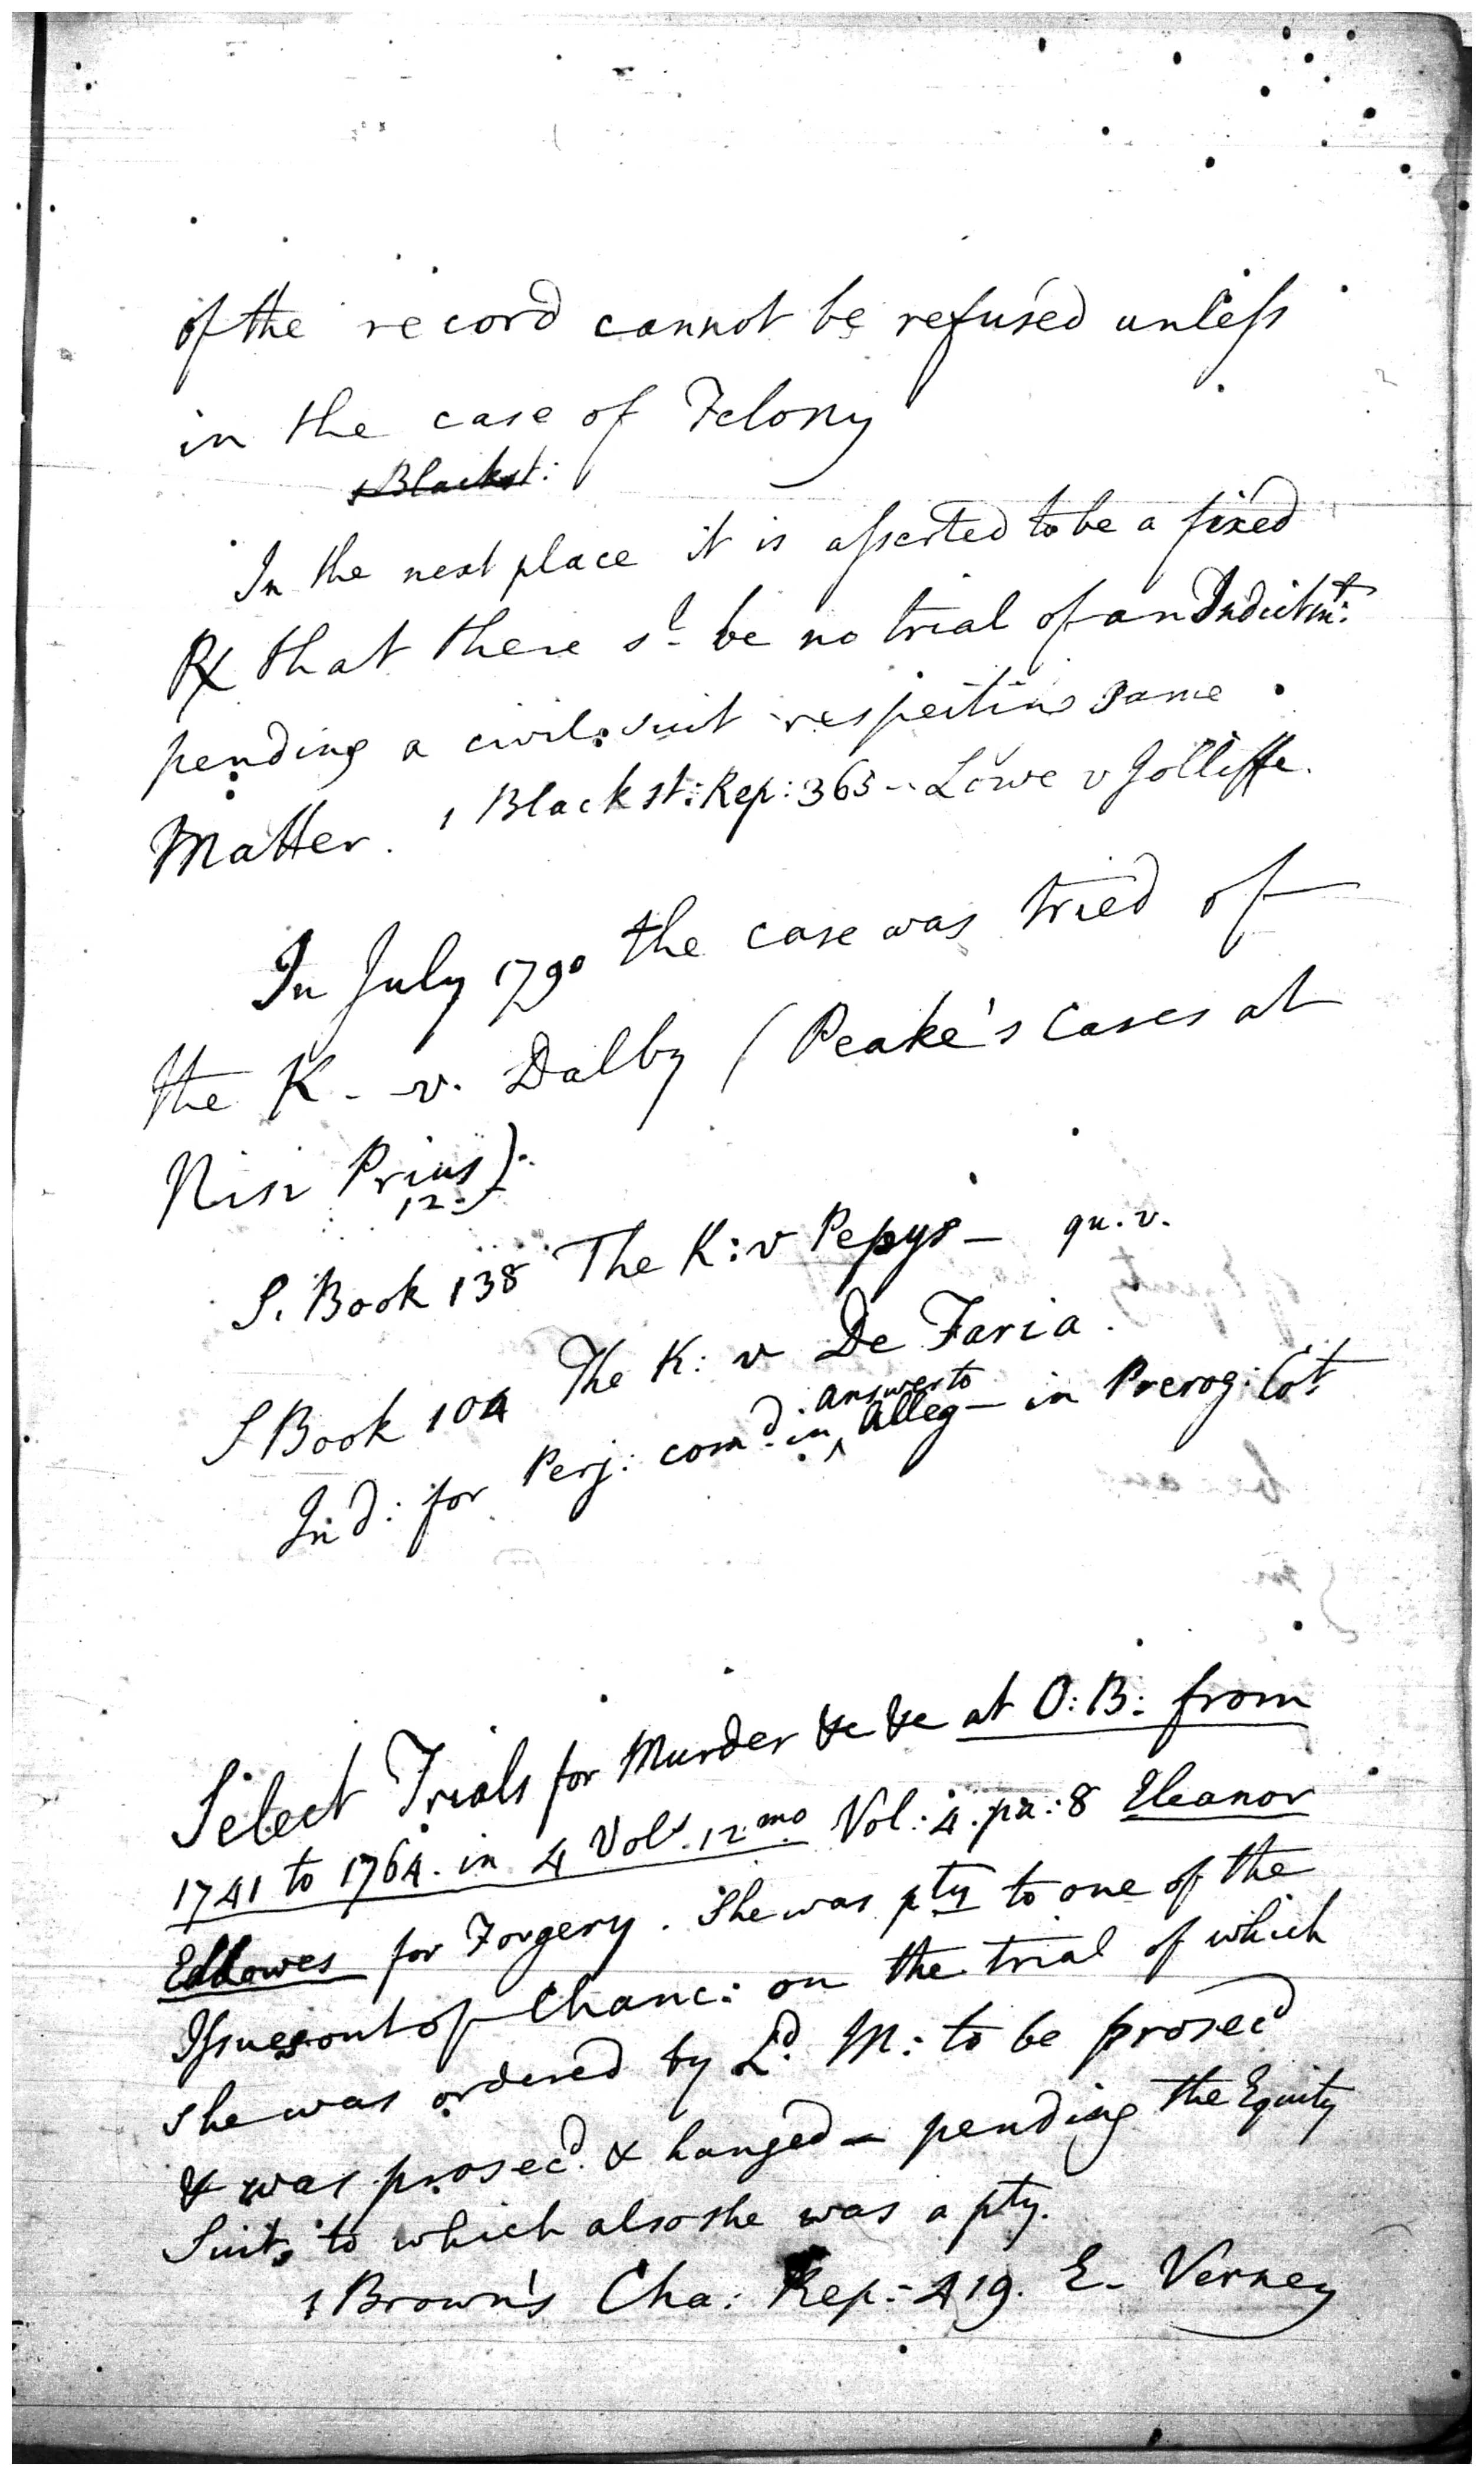 of the record cannot be refused unless
in the case of Felony
1 Blackst:
In the next place it is asserted to be a fixed
Rx that there sd be no trial of an Indictmt:
pending a civil suit respecting same
Matter. 1 Blackst: Rep: 363 - Lowe v Jolliffe.
In July 1790 the case was tried of
the K - v. Dalby (Peake's Cases at
Nisi Prius).
12.
S. Book 138 The K: v Pepys - qu. v.
S Book 104 The K: v De Faria.
answer to
Ind: for Perj: comd. in ^ Alleg - in Prerog: Cot
Select Trials for Murder &c &c at O: B: from
1741 to 1764. in 4 Vols. 12mo Vol: 4. pa: 8 Eleanor
Eddowes for Forgery. She was pty to one of the
Issues out of Chanc: on the trial of which
she was ordered by Ld. M: to be prosecd
& was prosecd. & hanged - pending the Equity
Suit, to which also she was a pty.
1 Brown's Cha: Rep: 419. E. Verney